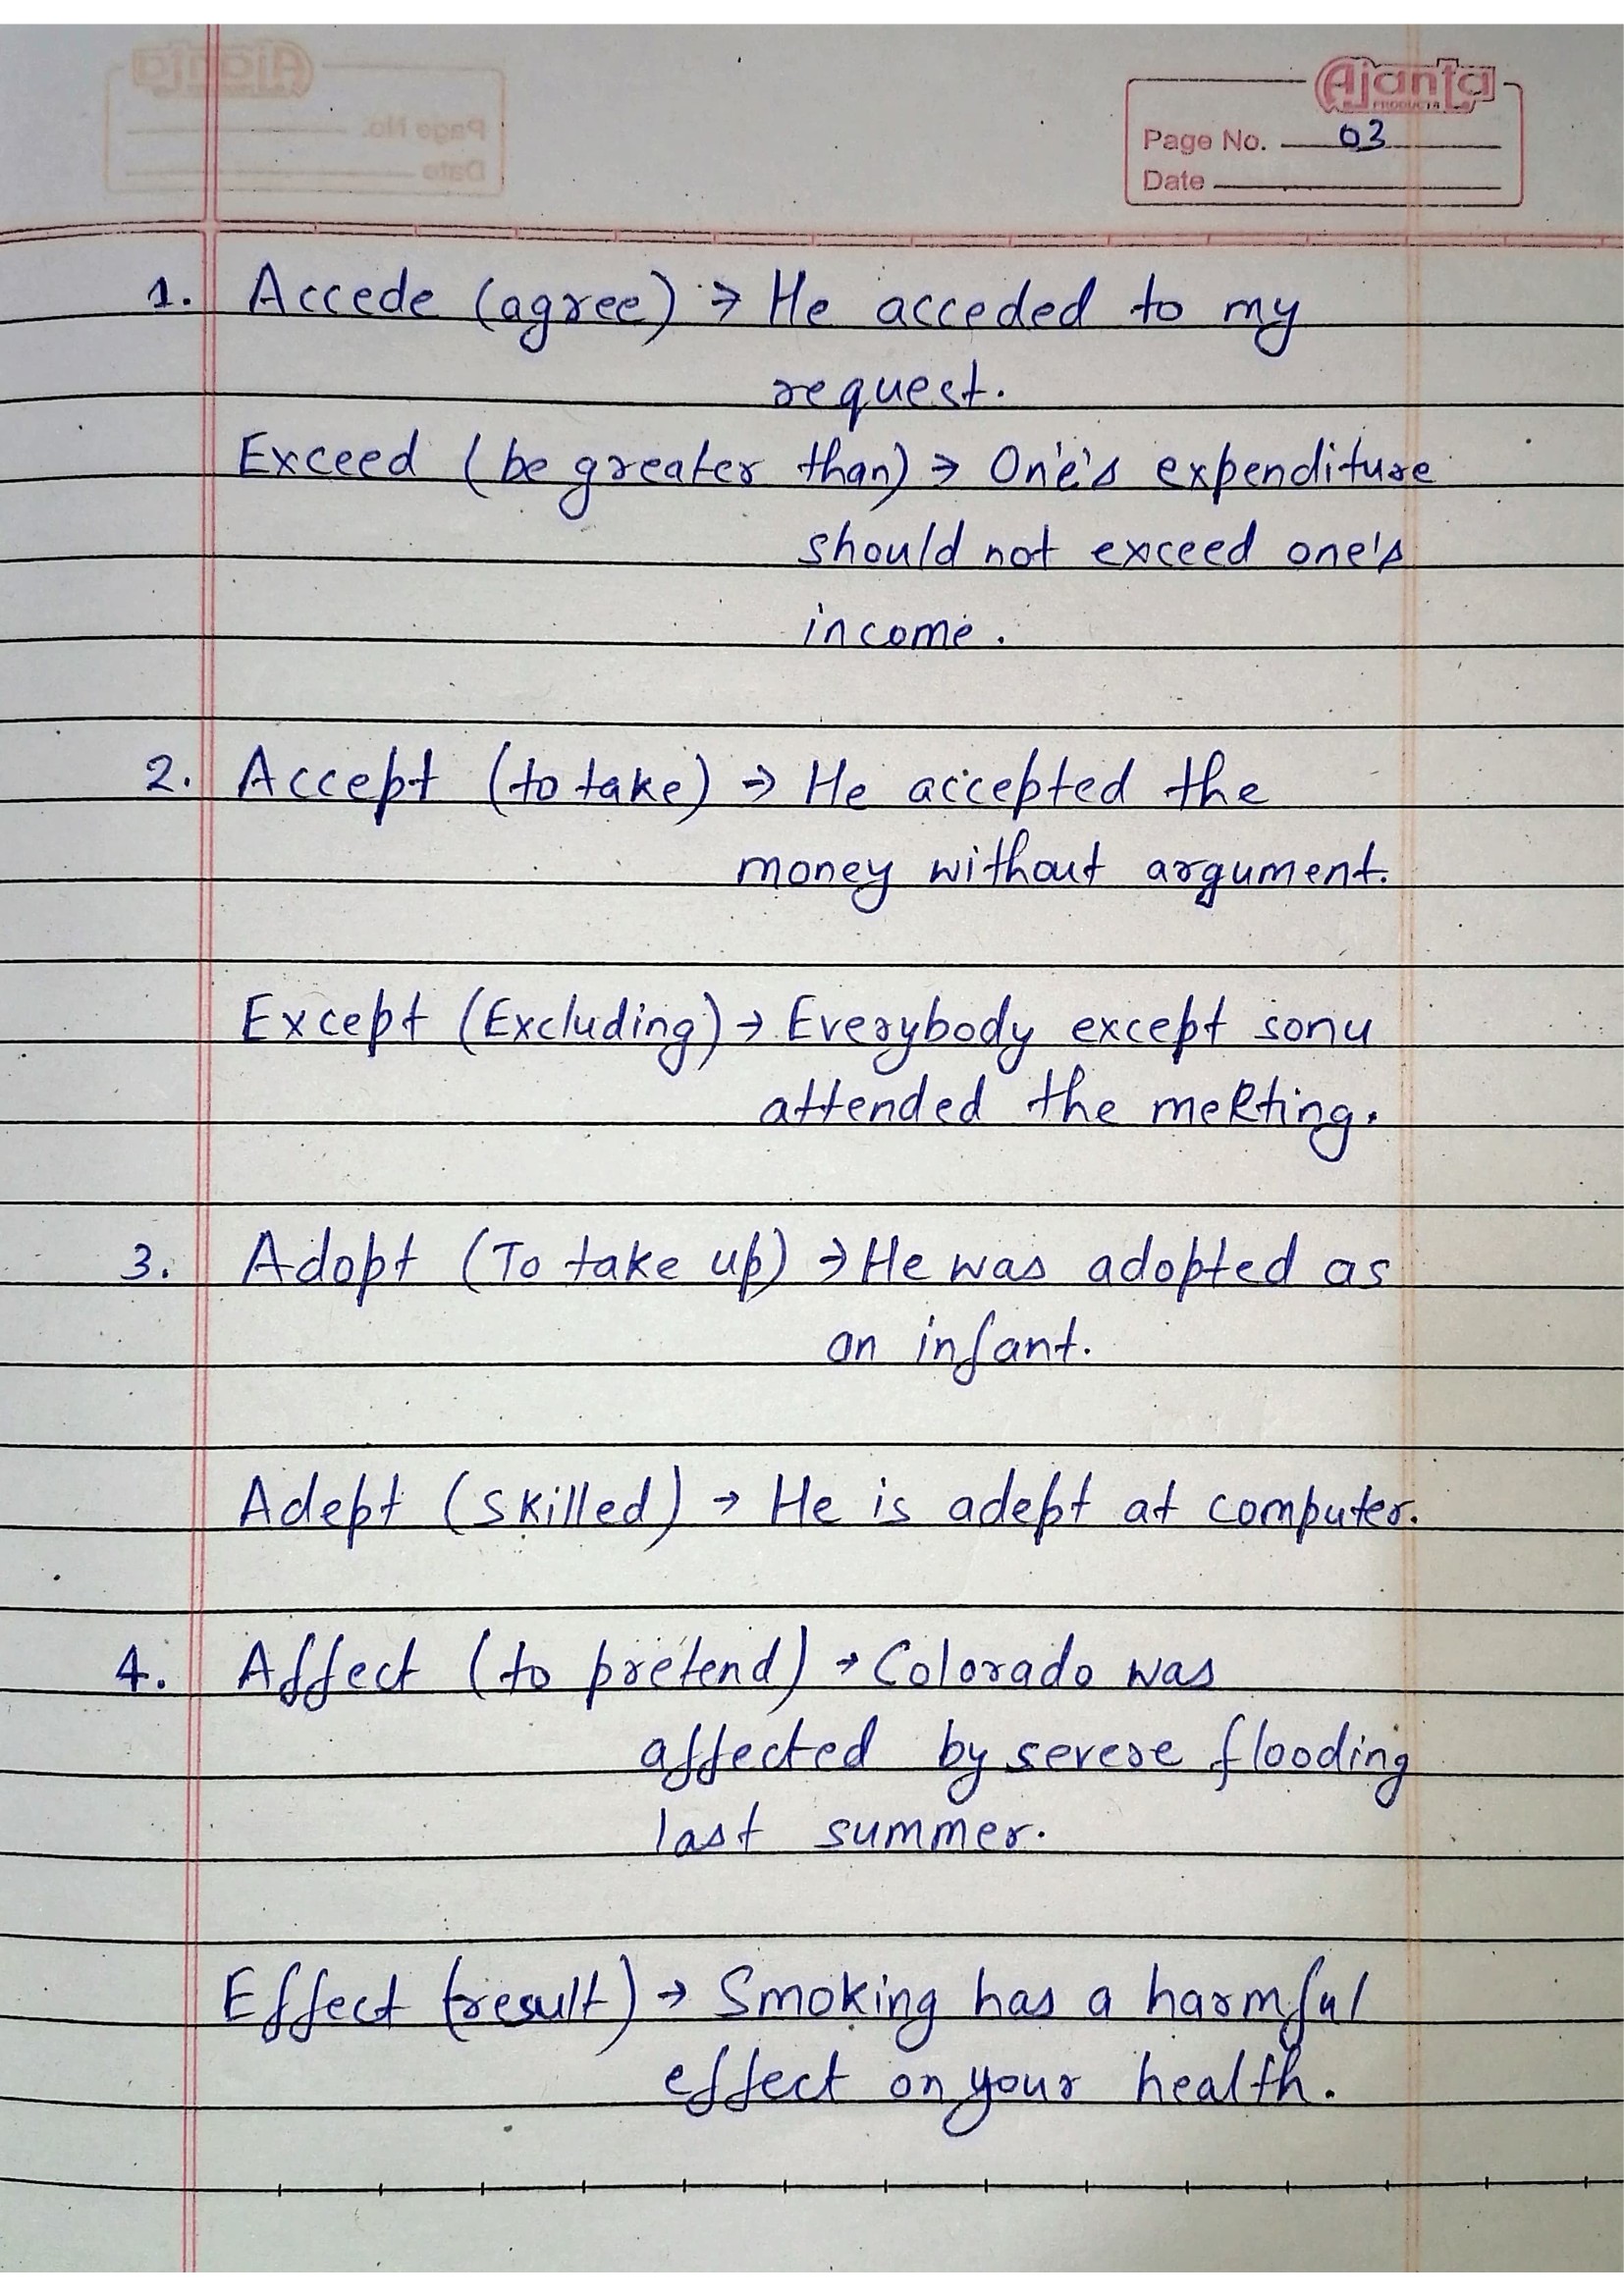 Ajanta
PRODUCTS
Page No. 03
Date
1. Accede (agree) → He acceded to my
request.
Exceed (be greater than) → One's expenditure
should not exceed one's
income.
2. Accept (to take) → He accepted the
money without argument.
Except (Excluding) → Everybody except sonu
attended the meeting.
3. Adopt (To take up) → He was adopted as
an infant.
Adept (skilled) → He is adept at computer.
4. Affect (to pretend) → Colorado was
affected by severe flooding
last summer.
Effect (result) → Smoking has a harmful
effect on your health.